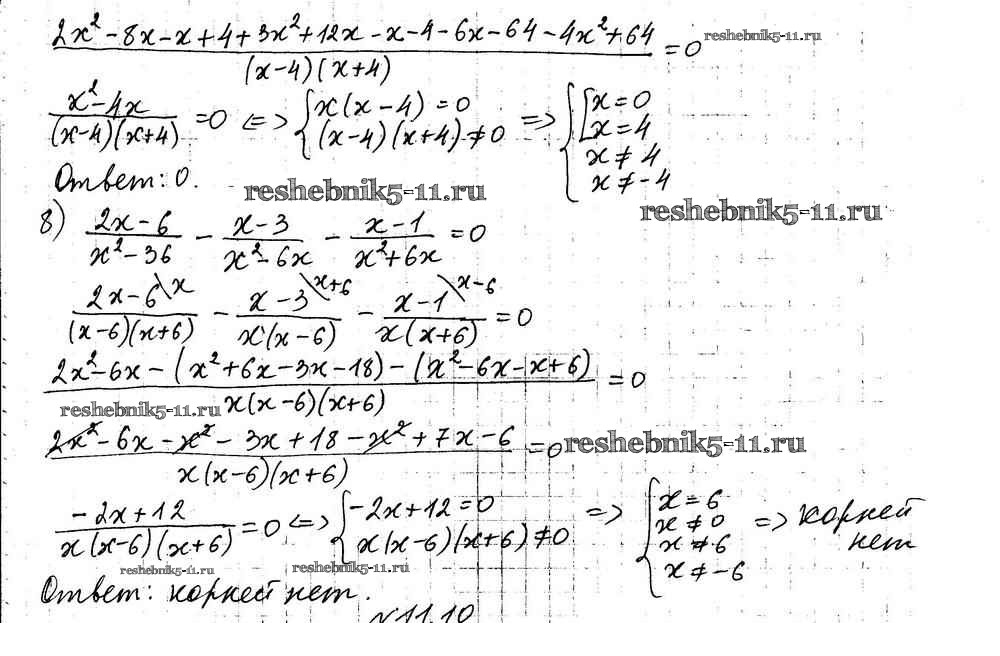 (2x² - 8x - x + 4 + 3x² + 12x - x - 4 - 6x - 64 - 4x² + 64) / ((x-4)(x+4)) = 0 reshebnik5-11.ru
(x² - 4x) / ((x-4)(x+4)) = 0 <=> { x(x-4) = 0; (x-4)(x+4) ≠ 0 => { [ x = 0; x = 4; x ≠ 4; x ≠ -4
Ответ: 0. reshebnik5-11.ru
reshebnik5-11.ru
8) (2x-6) / (x²-36) - (x-3) / (x²-6x) - (x-1) / (x²+6x) = 0
(2x-6 \x) / ((x-6)(x+6)) - (x-3 \x+6) / (x(x-6)) - (x-1 \x-6) / (x(x+6)) = 0
(2x² - 6x - (x² + 6x - 3x - 18) - (x² - 6x - x + 6)) / (x(x-6)(x+6)) = 0
reshebnik5-11.ru
(2x² - 6x - x² - 3x + 18 - x² + 7x - 6) / (x(x-6)(x+6)) = 0 reshebnik5-11.ru
(-2x + 12) / (x(x-6)(x+6)) = 0 <=> { -2x + 12 = 0; x(x-6)(x+6) ≠ 0 => { x = 6; x ≠ 0; x ≠ 6; x ≠ -6 => корней нет
reshebnik5-11.ru reshebnik5-11.ru
Ответ: корней нет.
N 11.10